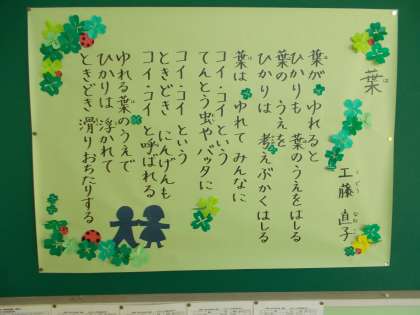 葉
工藤 直子
葉が ゆれると
ひかりも 葉のうえをはしる
葉の うえを
ひかりは 考えぶかくはしる
葉は ゆれて みんなに
コイ・コイ という
てんとう虫や バッタに
コイ・コイ という
ときどき にんげんも
コイ・コイ と呼ばれる
ゆれる葉のうえで
ひかりは 浮かれて
ときどき 滑りおちたりする